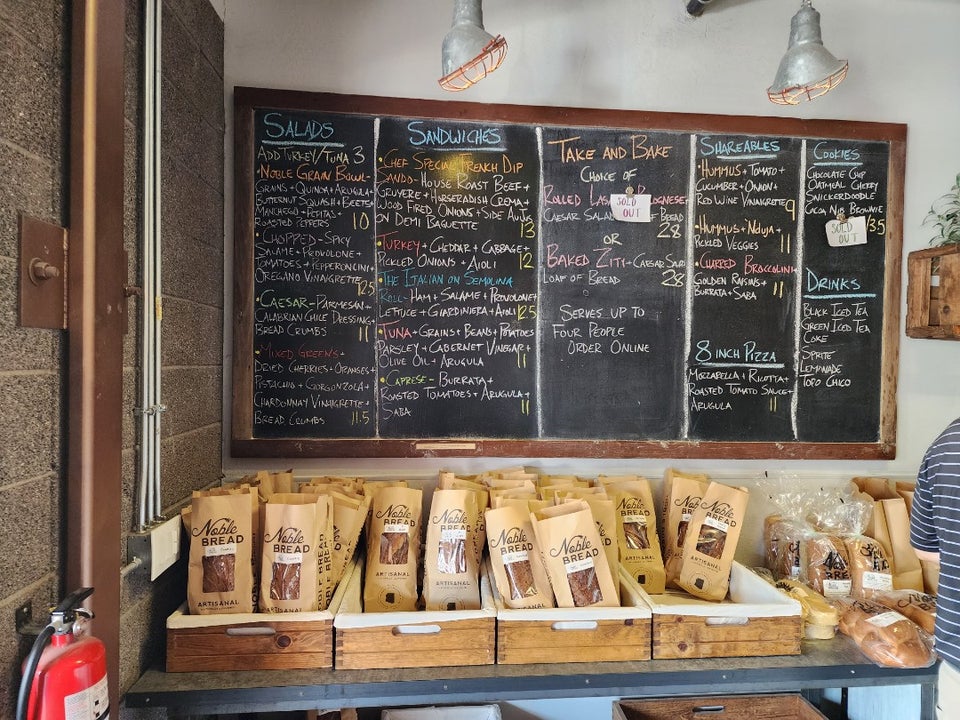 SALADS
ADD TURKEY/TUNA 3
• NOBLE GRAIN BOWL-
GRAINS + QUINOA + ARUGULA +
BUTTERNUT SQUASH + BEETS +
MANCHEGO + PEPITAS +
ROASTED PEPPERS 10
• CHOPPED - SPICY
SALAME + PROVOLONE +
TOMATOES + PEPPERONCINI +
OREGANO VINAIGRETTE 12.5
• CAESAR - PARMESAN +
CALABRIAN CHILE DRESSING +
BREAD CRUMBS 11
• MIXED GREENS +
DRIED CHERRIES + ORANGES +
PISTACHIO + GORGONZOLA +
CHARDONNAY VINAIGRETTE +
BREAD CRUMBS 11.5
SANDWICHES
• CHEF SPECIAL FRENCH DIP
SANDO - HOUSE ROAST BEEF +
GRUYERE + HORSERADISH CREMA +
WOOD FIRED ONIONS + SIDE AU JUS
ON DEMI BAGUETTE 13
• TURKEY + CHEDDAR + CABBAGE +
PICKLED ONIONS + AIOLI 12
• THE ITALIAN ON SEMOLINA
ROLL - HAM + SALAME + PROVOLONE +
LETTUCE + GIARDINIERA + AIOLI 12.5
• TUNA + GRAINS + BEANS + POTATOES
PARSLEY + CABERNET VINEGAR +
OLIVE OIL + ARUGULA 11
• CAPRESE - BURRATA +
ROASTED TOMATOES + ARUGULA +
SABA 11
TAKE AND BAKE
CHOICE OF
ROLLED BOLOGNESE
SOLD
OUT
CAESAR OF BREAD
28
OR
BAKED ZITI - CAESAR SALAD
LOAF OF BREAD 28
SERVES UP TO
FOUR PEOPLE
ORDER ONLINE
SHAREABLES
• HUMMUS + TOMATO +
CUCUMBER + ONION +
RED WINE VINAIGRETTE 9
• HUMMUS + 'NDUJA +
PICKLED VEGGIES 11
• CHARRED BROCCOLINI +
GOLDEN RAISINS +
BURRATA + SABA 11
8 INCH PIZZA
MOZZARELLA + RICOTTA +
ROASTED TOMATO SAUCE +
ARUGULA 11
COOKIES
CHOCOLATE CHIP
OATMEAL CHERRY
SNICKERDOODLE
COCOA NIB BROWNIE
SOLD
OUT
DRINKS
BLACK ICED TEA
GREEN ICED TEA
COKE
SPRITE
LEMONADE
TOPO CHICO
Noble
BREAD
ARTISANAL
Noble
BREAD
Noble
BREAD
ARTISANAL
Noble
BREAD
ARTISANAL
Noble
BREAD
Noble
BREAD
Noble
BREAD
Noble
BREAD
ARTISANAL